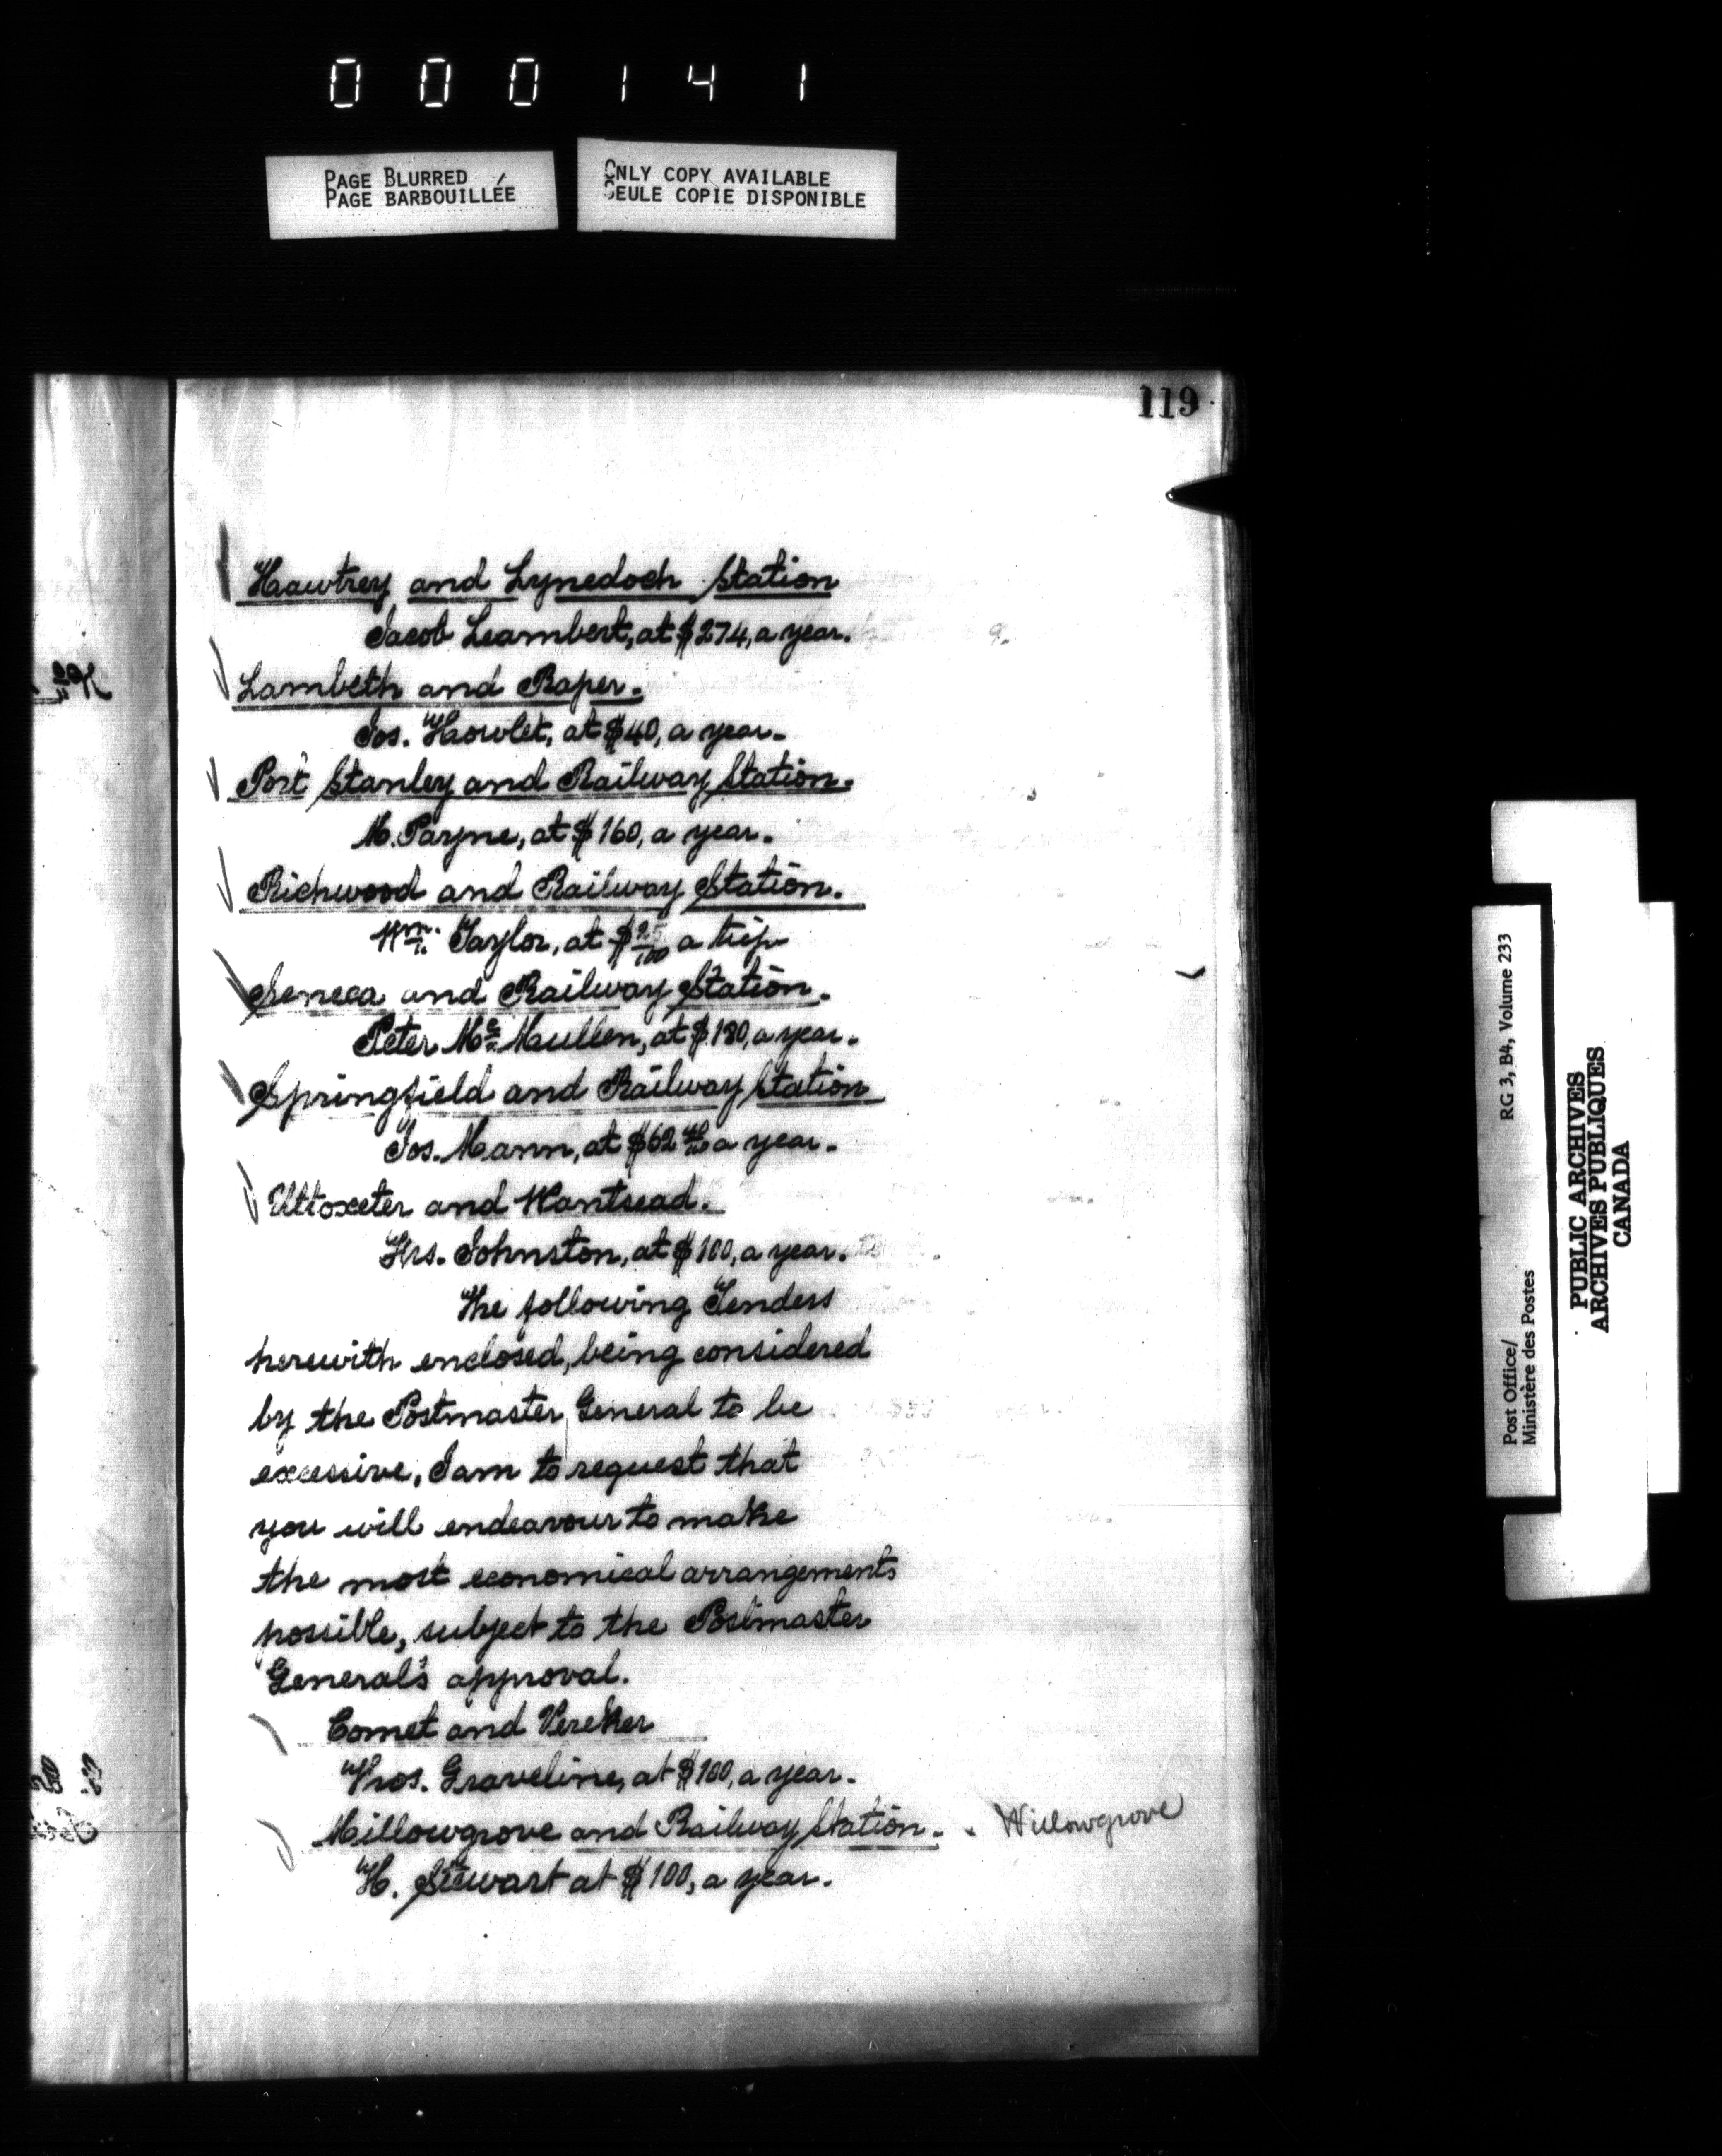 000141
PAGE BLURRED
PAGE BARBOUILLÉE
ONLY COPY AVAILABLE
SEULE COPIE DISPONIBLE
119
Hawtrey and Lynedoch Station
Jacob Leambert, at $274, a year.
Lambeth and Raper.
Jos. Howlet, at $40, a year.
Port Stanley and Railway Station.
M. Payne, at $160, a year.
Richwood and Railway Station.
Wm. Taylor, at $25/100 a trip
Seneca and Railway Station.
Peter Mc Mullen, at $180, a year.
Springfield and Railway Station
Jos. Mann, at $62 40/100 a year.
Uttoxeter and Wantsead.
Frs. Johnston, at $100, a year.
The following Tenders
herewith enclosed, being considered
by the Postmaster General to be
excessive, I am to request that
you will endeavour to make
the most economical arrangements
possible, subject to the Postmaster
General's approval.
Comet and Vereker
Thos. Graveline, at $100, a year.
Millowgrove and Railway Station. Willowgrove
H. Stewart at $100, a year.
RG 3, B4, Volume 233
Post Office/
Ministère des Postes
PUBLIC ARCHIVES
ARCHIVES PUBLIQUES
CANADA